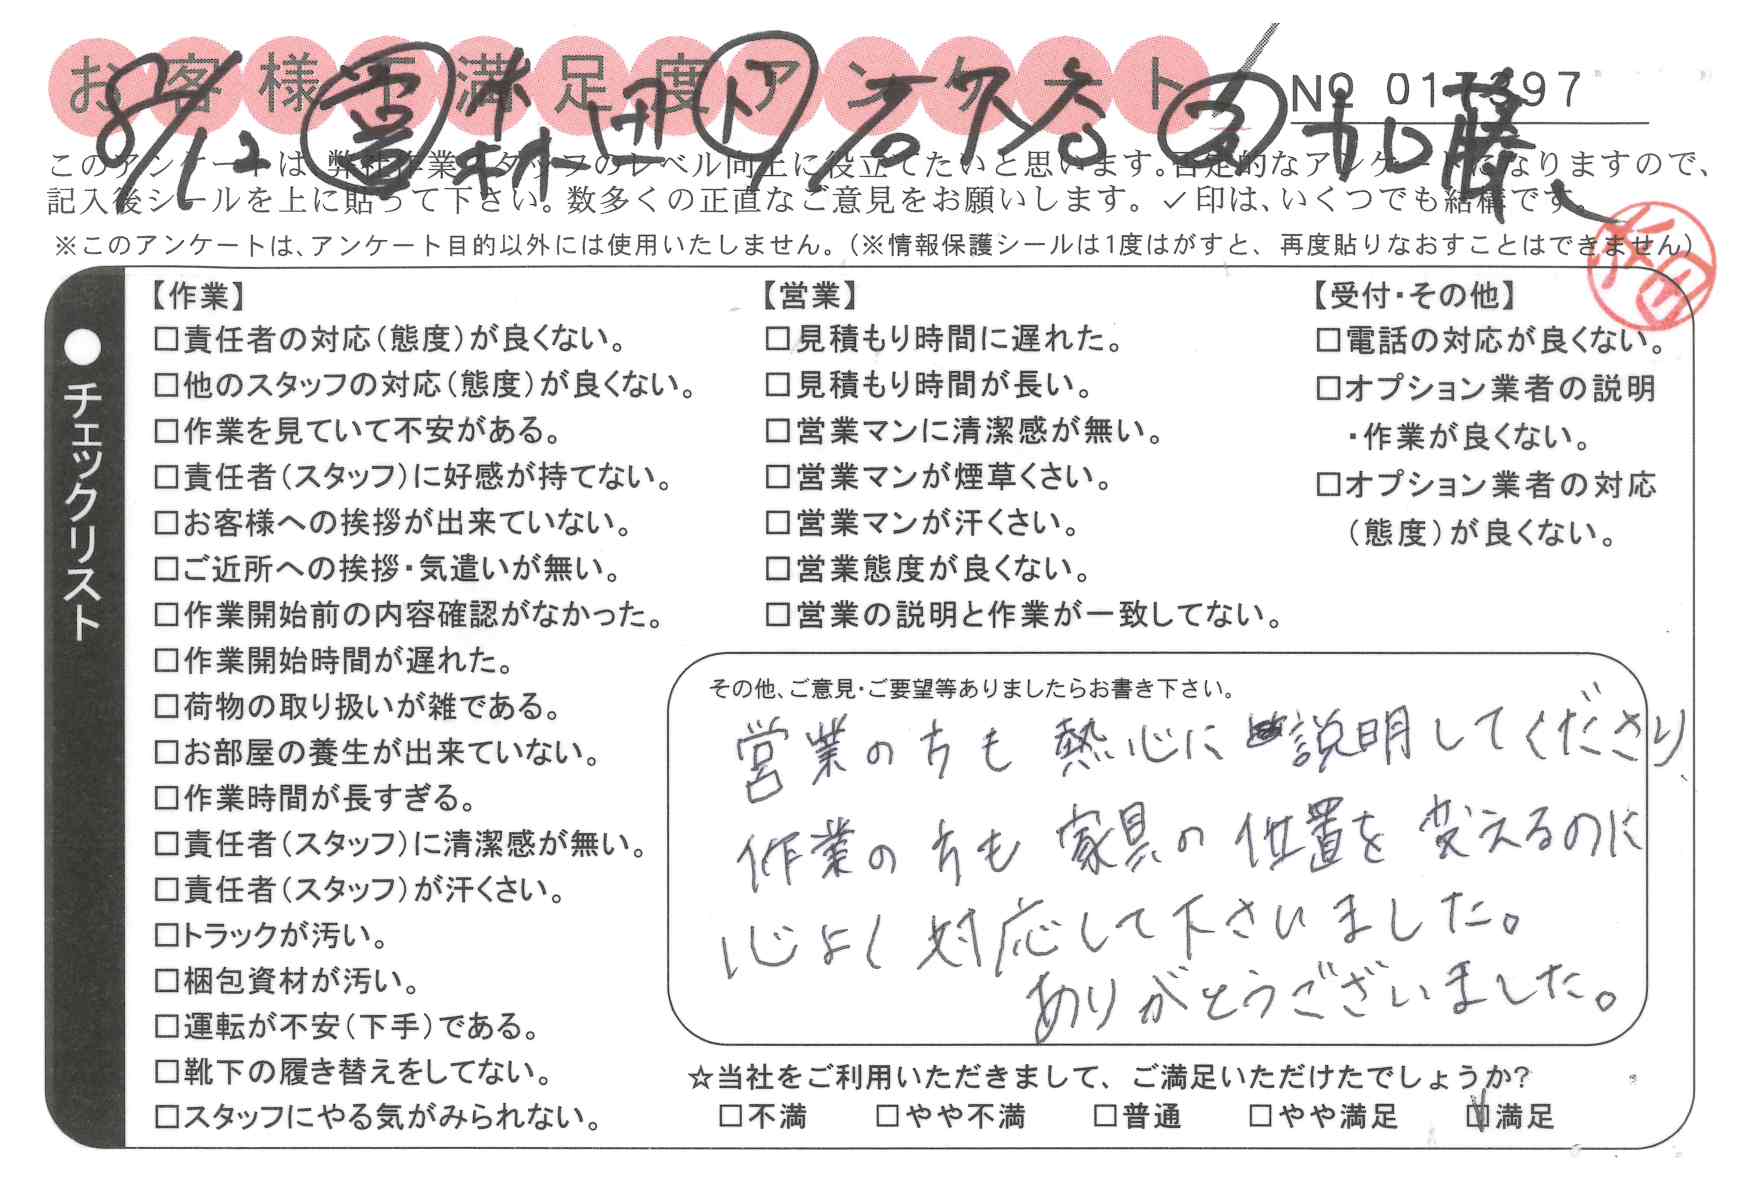 お客様不満足度アンケート
No 017397
8/12 営 村田 ト 加藤
このアンケートは、弊社作業スタッフのレベル向上に役立てたいと思います。否定的なアンケートになりますので、
記入後シールを上に貼って下さい。数多くの正直なご意見をお願いします。✓印は、いくつでも結構です。
※このアンケートは、アンケート目的以外には使用いたしません。（※情報保護シールは1度はがすと、再度貼りなおすことはできません）
●チェックリスト
【作業】
□責任者の対応（態度）が良くない。
□他のスタッフの対応（態度）が良くない。
□作業を見ていて不安がある。
□責任者（スタッフ）に好感が持てない。
□お客様への挨拶が出来ていない。
□ご近所への挨拶・気遣いが無い。
□作業開始前の内容確認がなかった。
□作業開始時間が遅れた。
□荷物の取り扱いが雑である。
□お部屋の養生が出来ていない。
□作業時間が長すぎる。
□責任者（スタッフ）に清潔感が無い。
□責任者（スタッフ）が汗くさい。
□トラックが汚い。
□梱包資材が汚い。
□運転が不安（下手）である。
□靴下の履き替えをしてない。
□スタッフにやる気がみられない。
【営業】
□見積もり時間に遅れた。
□見積もり時間が長い。
□営業マンに清潔感が無い。
□営業マンが煙草くさい。
□営業マンが汗くさい。
□営業態度が良くない。
□営業の説明と作業が一致してない。
【受付・その他】
□電話の対応が良くない。
□オプション業者の説明
・作業が良くない。
□オプション業者の対応
（態度）が良くない。
その他、ご意見・ご要望等ありましたらお書き下さい。
営業の方も熱心に説明してくださり、
作業の方も家具の位置を変えるのに
心よく対応して下さいました。
ありがとうございました。
☆当社をご利用いただきまして、ご満足いただけたでしょうか？
□不満 □やや不満 □普通 □やや満足 ☑満足